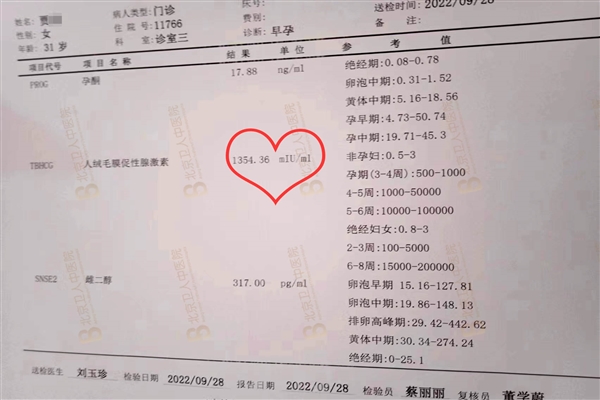 姓名:贾 病人类型:门诊 费别: 送检时间:2022/09/28
性别:女 住院号:11766 诊断:早孕 备注:
年龄:31岁 科室:诊室三
项目代号 项目名称 结果 单位 参考值
PROG 孕酮 17.88 ng/ml 绝经期:0.08-0.78
卵泡中期:0.31-1.52
黄体中期:5.16-18.56
孕早期:4.73-50.74
孕中期:19.71-45.3
TBHCG 人绒毛膜促性腺激素 1354.36 mIU/ml 非孕妇:0.5-3
孕期(3-4周):500-1000
4-5周:1000-50000
5-6周:10000-100000
绝经妇女:0.8-3
2-3周:100-5000
6-8周:15000-200000
SNSE2 雌二醇 317.00 pg/ml 卵泡早期 15.16-127.81
卵泡中期:19.86-148.13
排卵高峰期:29.42-442.62
黄体中期:30.34-274.24
绝经期:0-25.1
送检医生 刘玉珍 检验日期 2022/09/28 报告日期 2022/09/28 检验员 蔡丽丽 复核员 董学蔚